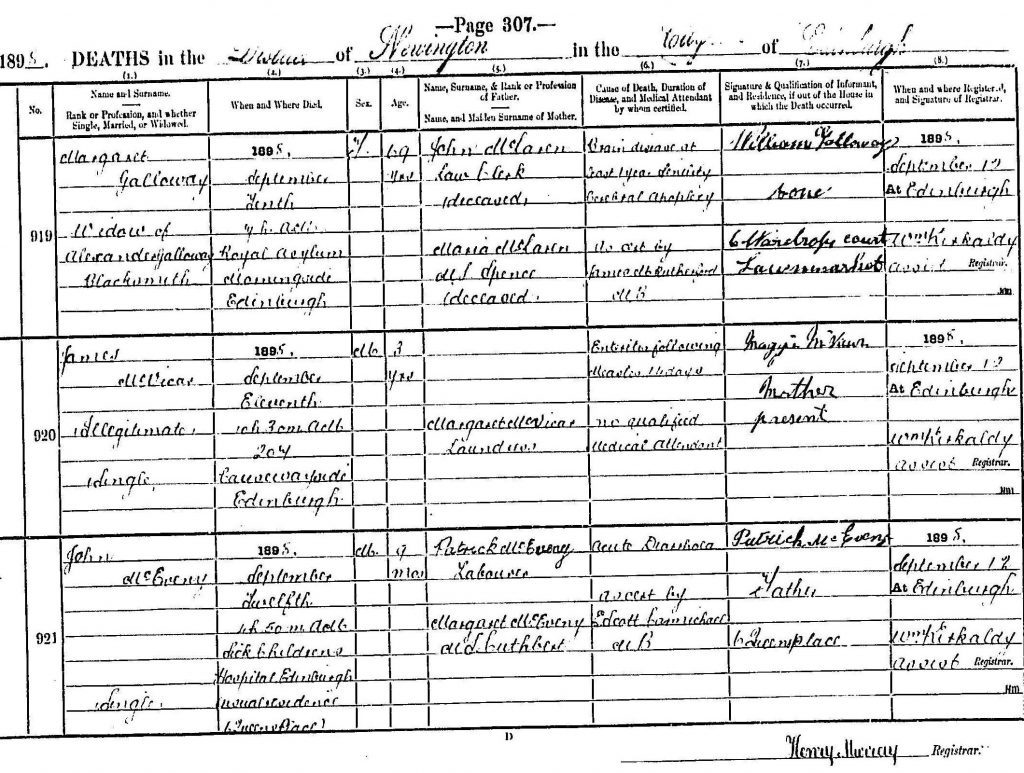 —Page 307.—
1898. DEATHS in the District of Newington in the City of Edinburgh
(1.) (2.) (3.) (4.) (5.) (6.) (7.) (8.)
No.
Name and Surname.
Rank or Profession, and whether
Single, Married, or Widowed.
When and Where Died.
Sex.
Age.
Name, Surname, & Rank or Profession
of Father.
Name, and Maiden Surname of Mother.
Cause of Death, Duration of
Disease, and Medical Attendant
by whom certified.
Signature & Qualification of Informant,
and Residence, if out of the House in
which the Death occurred.
When and where Registered,
and Signature of Registrar.
919
Margaret
Galloway
Widow of
Alexander Galloway
Blacksmith
1898,
September
Tenth
Royal Asylum
Morningside
Edinburgh
F.
69
yrs
John McLaren
Law Clerk
(deceased)
Maria McLaren
M.S. Spence
(deceased)
Brain disease at
least 1 year Senility
Cerebral Apoplexy
As cert by
James M. Rutherford
M.B
William Galloway
Son
6 Wardrops court
Lawnmarket
1898,
September 12
At Edinburgh
Wm Kirkaldy
Assist Registrar.
920
James
McVicar
Illegitimate
Single
1898,
September
Eleventh
1h. 3om. A.M.
207
Causewayside
Edinburgh
M.
3
yrs
Margaret McVicar
Laundress
Enteritis following
Measles 14 days
No qualified
Medical Attendant
Mother
present
1898,
September 12
At Edinburgh
Wm Kirkaldy
Assist Registrar.
921
John
McEveny
Single
1898,
September
Twelfth
1h. 50m. A.M.
Sick Childrens
Hospital Edinburgh
(usual residence
6 Queens Place)
M.
9
mos
Patrick McEveny
Labourer
Margaret McEveny
M.S. Cuthbert
Acute Diarrhoea
As cert by
E Scott Carmichael
M.B
Patrick McEveny
Father
6 Queensplace
1898,
September 12
At Edinburgh
Wm Kirkaldy
Assist Registrar.
D
Henry Murray Registrar.